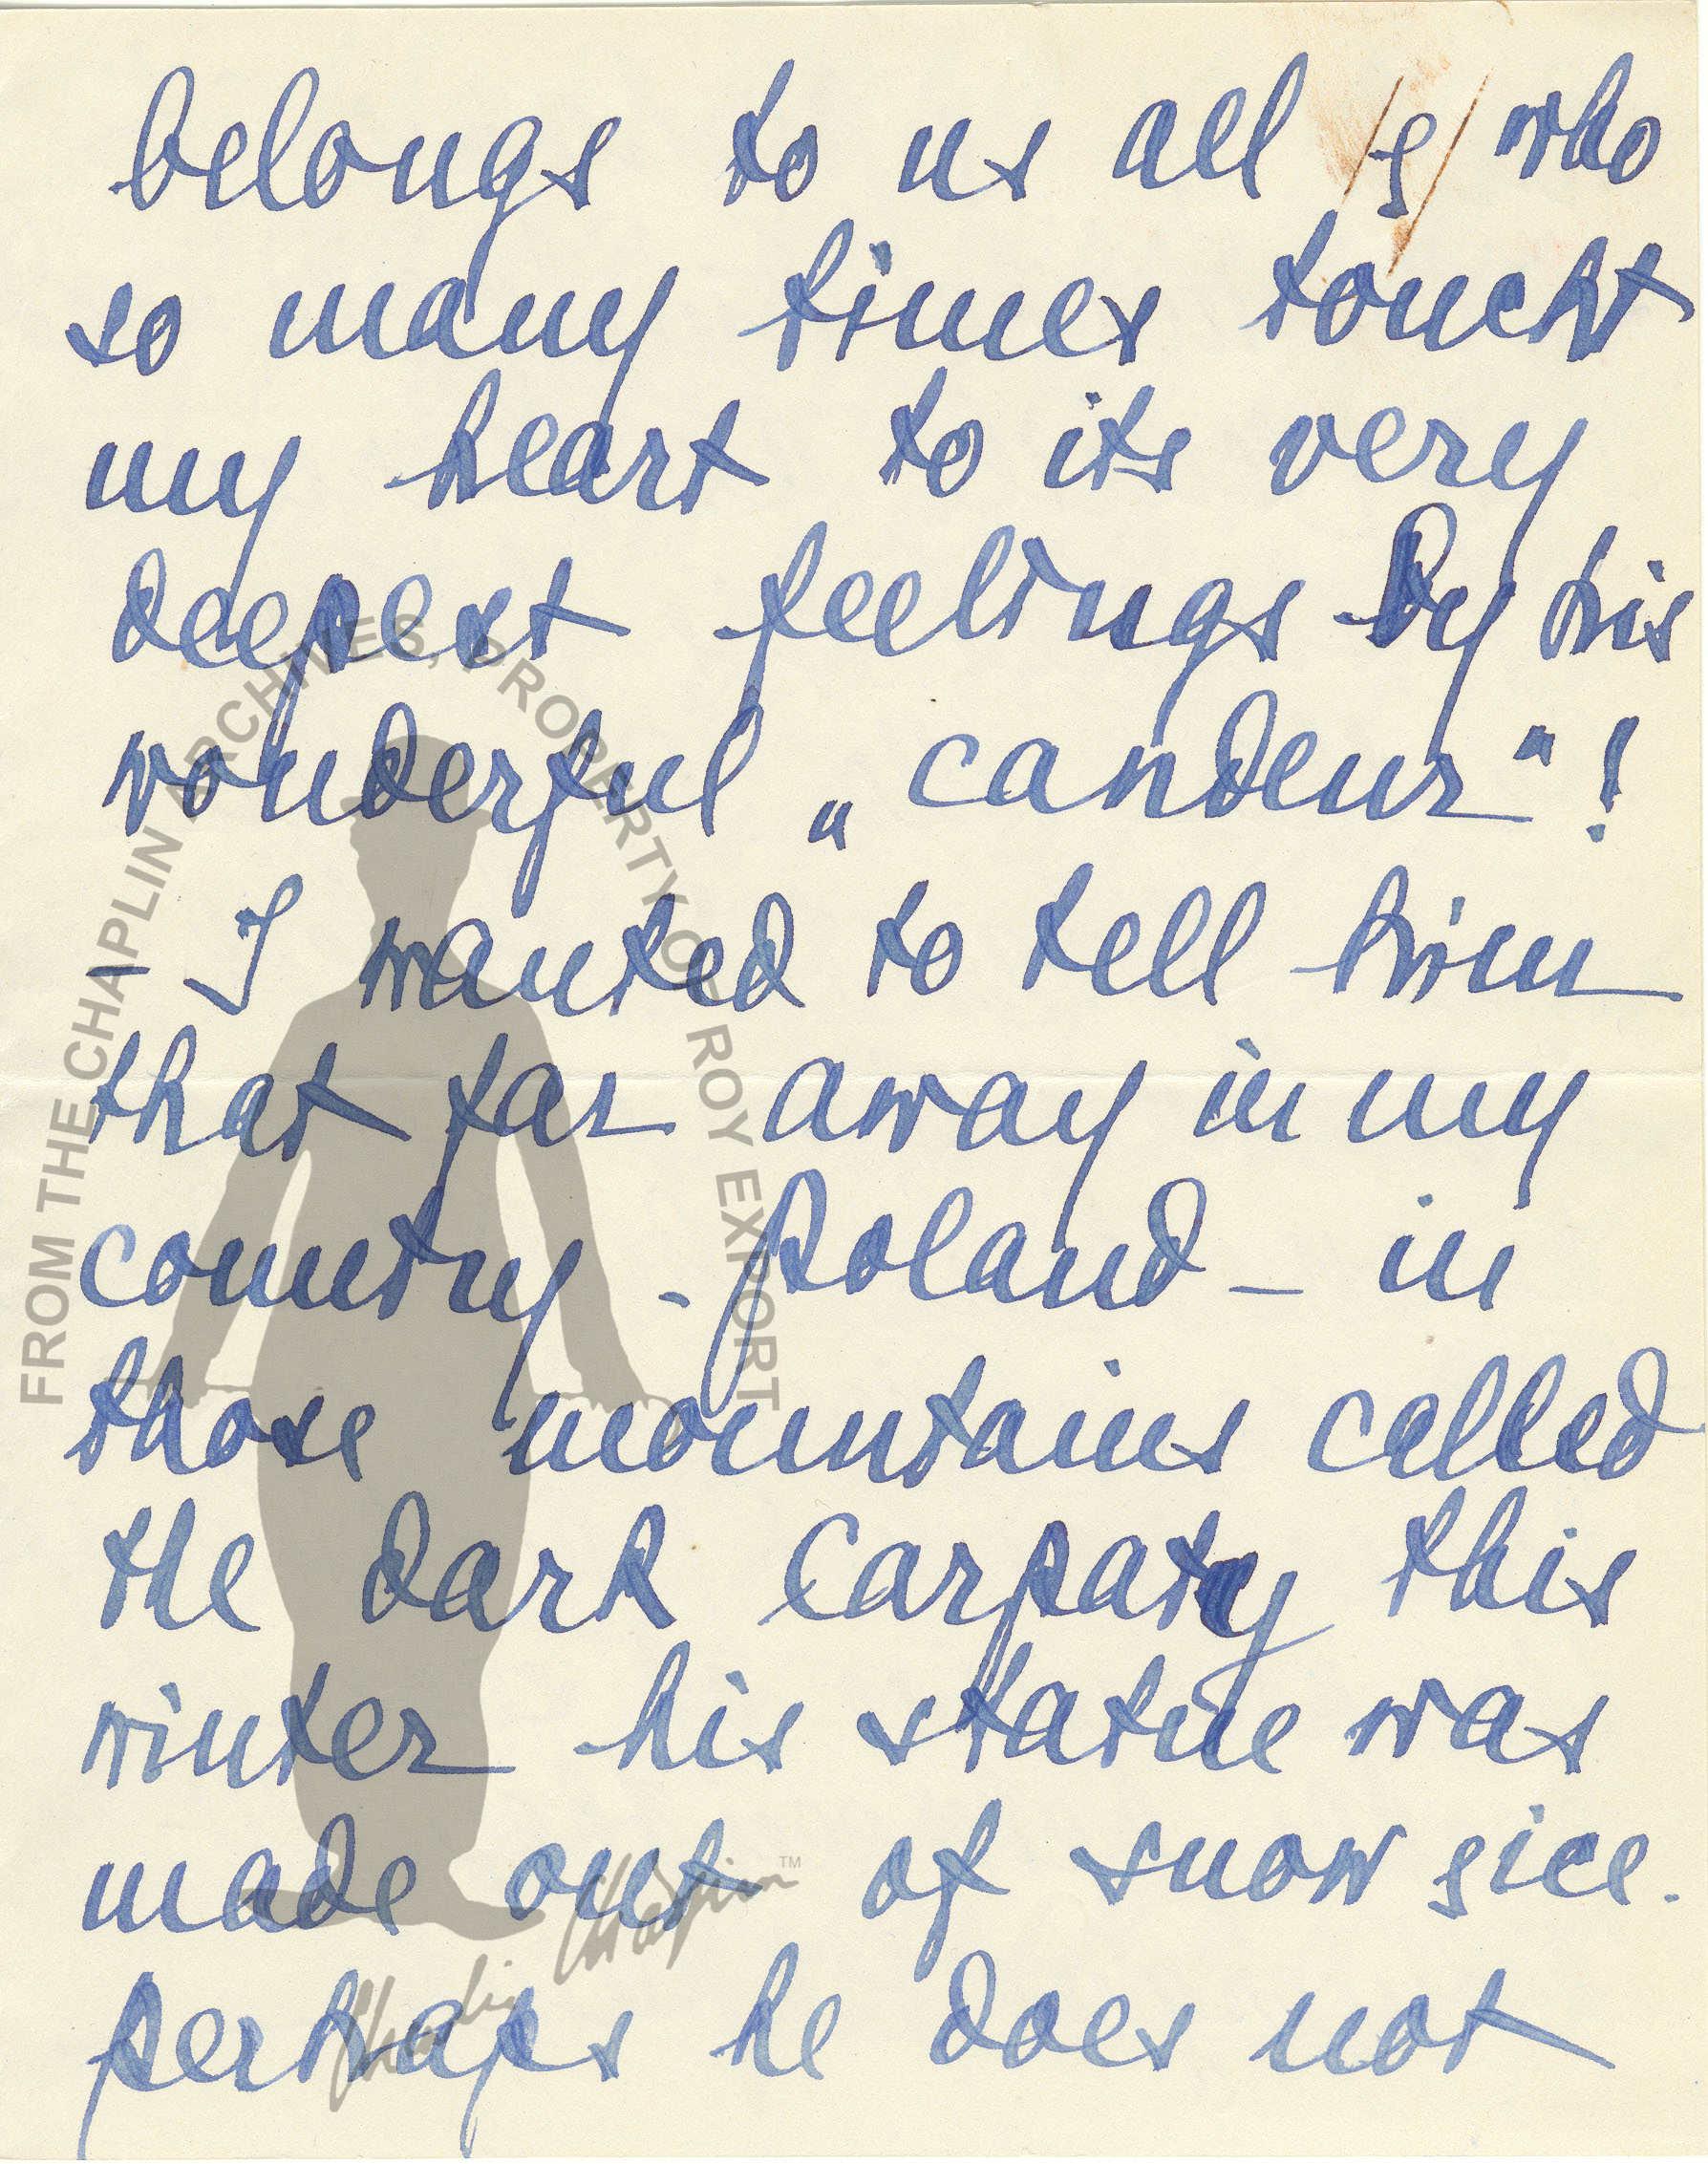 belongs to us all & who
so many times toucht
my heart to its very
deepest feelings by his
wonderful „candeur"!
- I wanted to tell him
that far away in my
country - Poland - in
those mountains called
the dark Carpaty this
winter his statue was
made out of snow & ice.
perhaps he does not
FROM THE CHAPLIN ARCHIVES, PROPERTY OF ROY EXPORT
Charlie Chaplin™